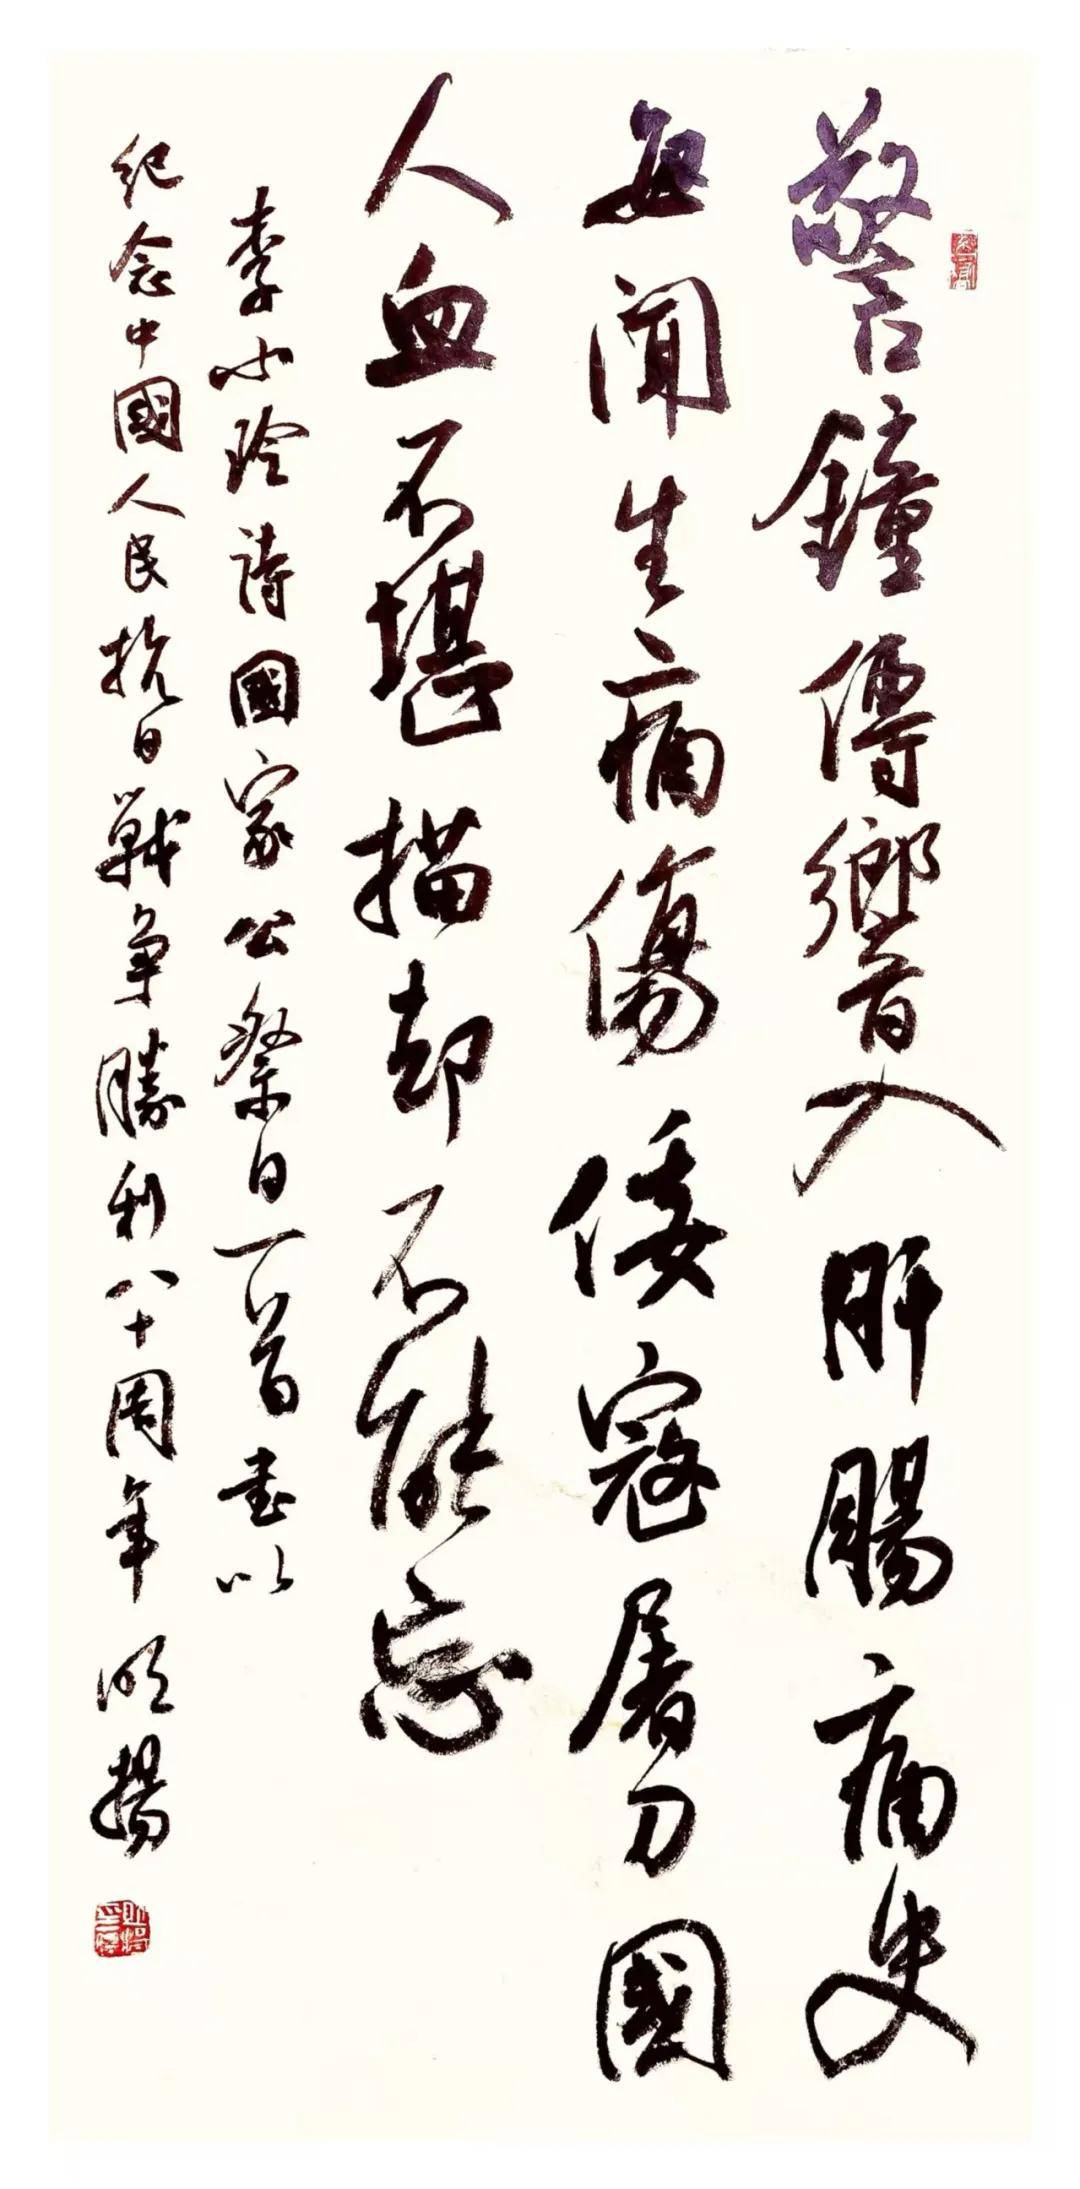 警鐘傳響入肝腸痛史
每聞生痛傷倭寇屠刀國
人血不堪描却不能忘
李小玲詩國家公祭日一首書以
紀念中國人民抗日戰爭勝利八十周年 明揚